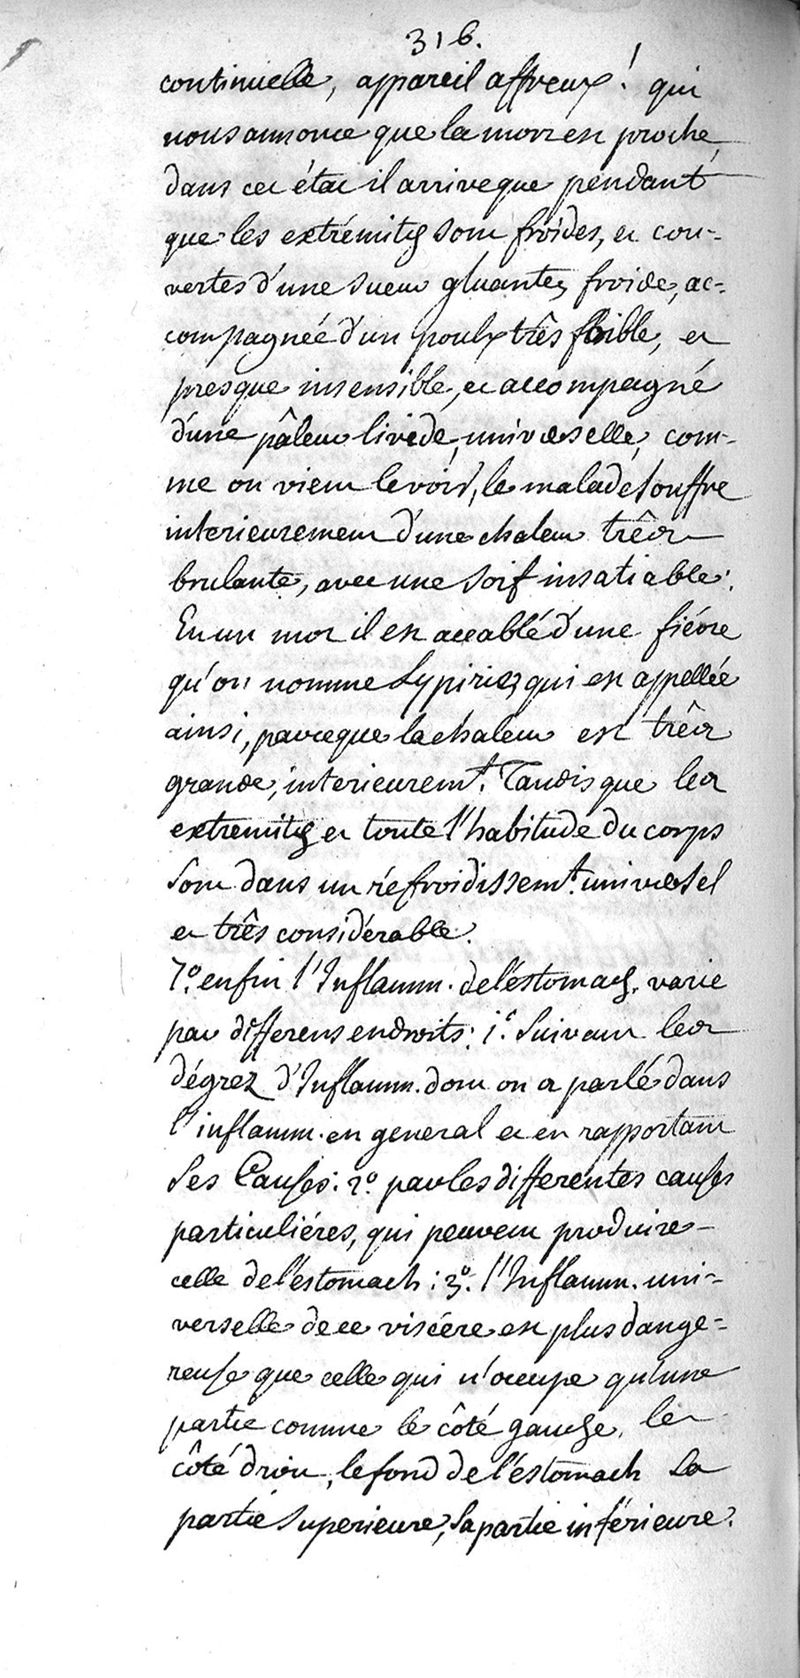 316.
continuelle, appareil affreux! qui
nous annonce que la mort est proche,
dans cet état il arrive que pendant
que les extrémités sont froides, et cou-
vertes d'une sueur gluante, froide, ac-
compagnée d'un poulx très foible, et
presque insensible, et accompagné
d'une pâleur livide, universelle, com-
me on vient le voir, le malade souffre
interieurement d'une chaleur très
brulante, avec une soif insatiable.
En un mot il est accablé d'une fiévre
qu'on nomme Lypirie, qui est appellée
ainsi, parceque la chaleur est très
grande, interieuremt. Tandis que les
extremités et toute l'habitude du corps
sont dans un réfroidissemt. universel
et très considérable.
7.º enfin l'Inflamm. de l'éstomach varie
par differens endroits: 1.º Suivant les
dégrez d'Inflamm. dont on a parlé dans
l'inflamm. en general et en rapportant
ses Causes: 2.º par les differentes causes
particuliéres, qui peuvent produire
celle de l'éstomach: 3.º l'Inflamm. uni-
verselle de ce viscére est plus dange-
reuse que celle qui n'occupe qu'une
partie comme le côté gauche, le
côté droit, le fond de l'éstomach la
partie superieure, la partie inférieure.